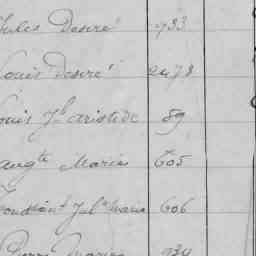 Jules Désiré 733
Louis Désiré 2473
Louis Jh aristide 89
augte Marie 605
Toussaint Jul Marie 606
Pierre Marie 934